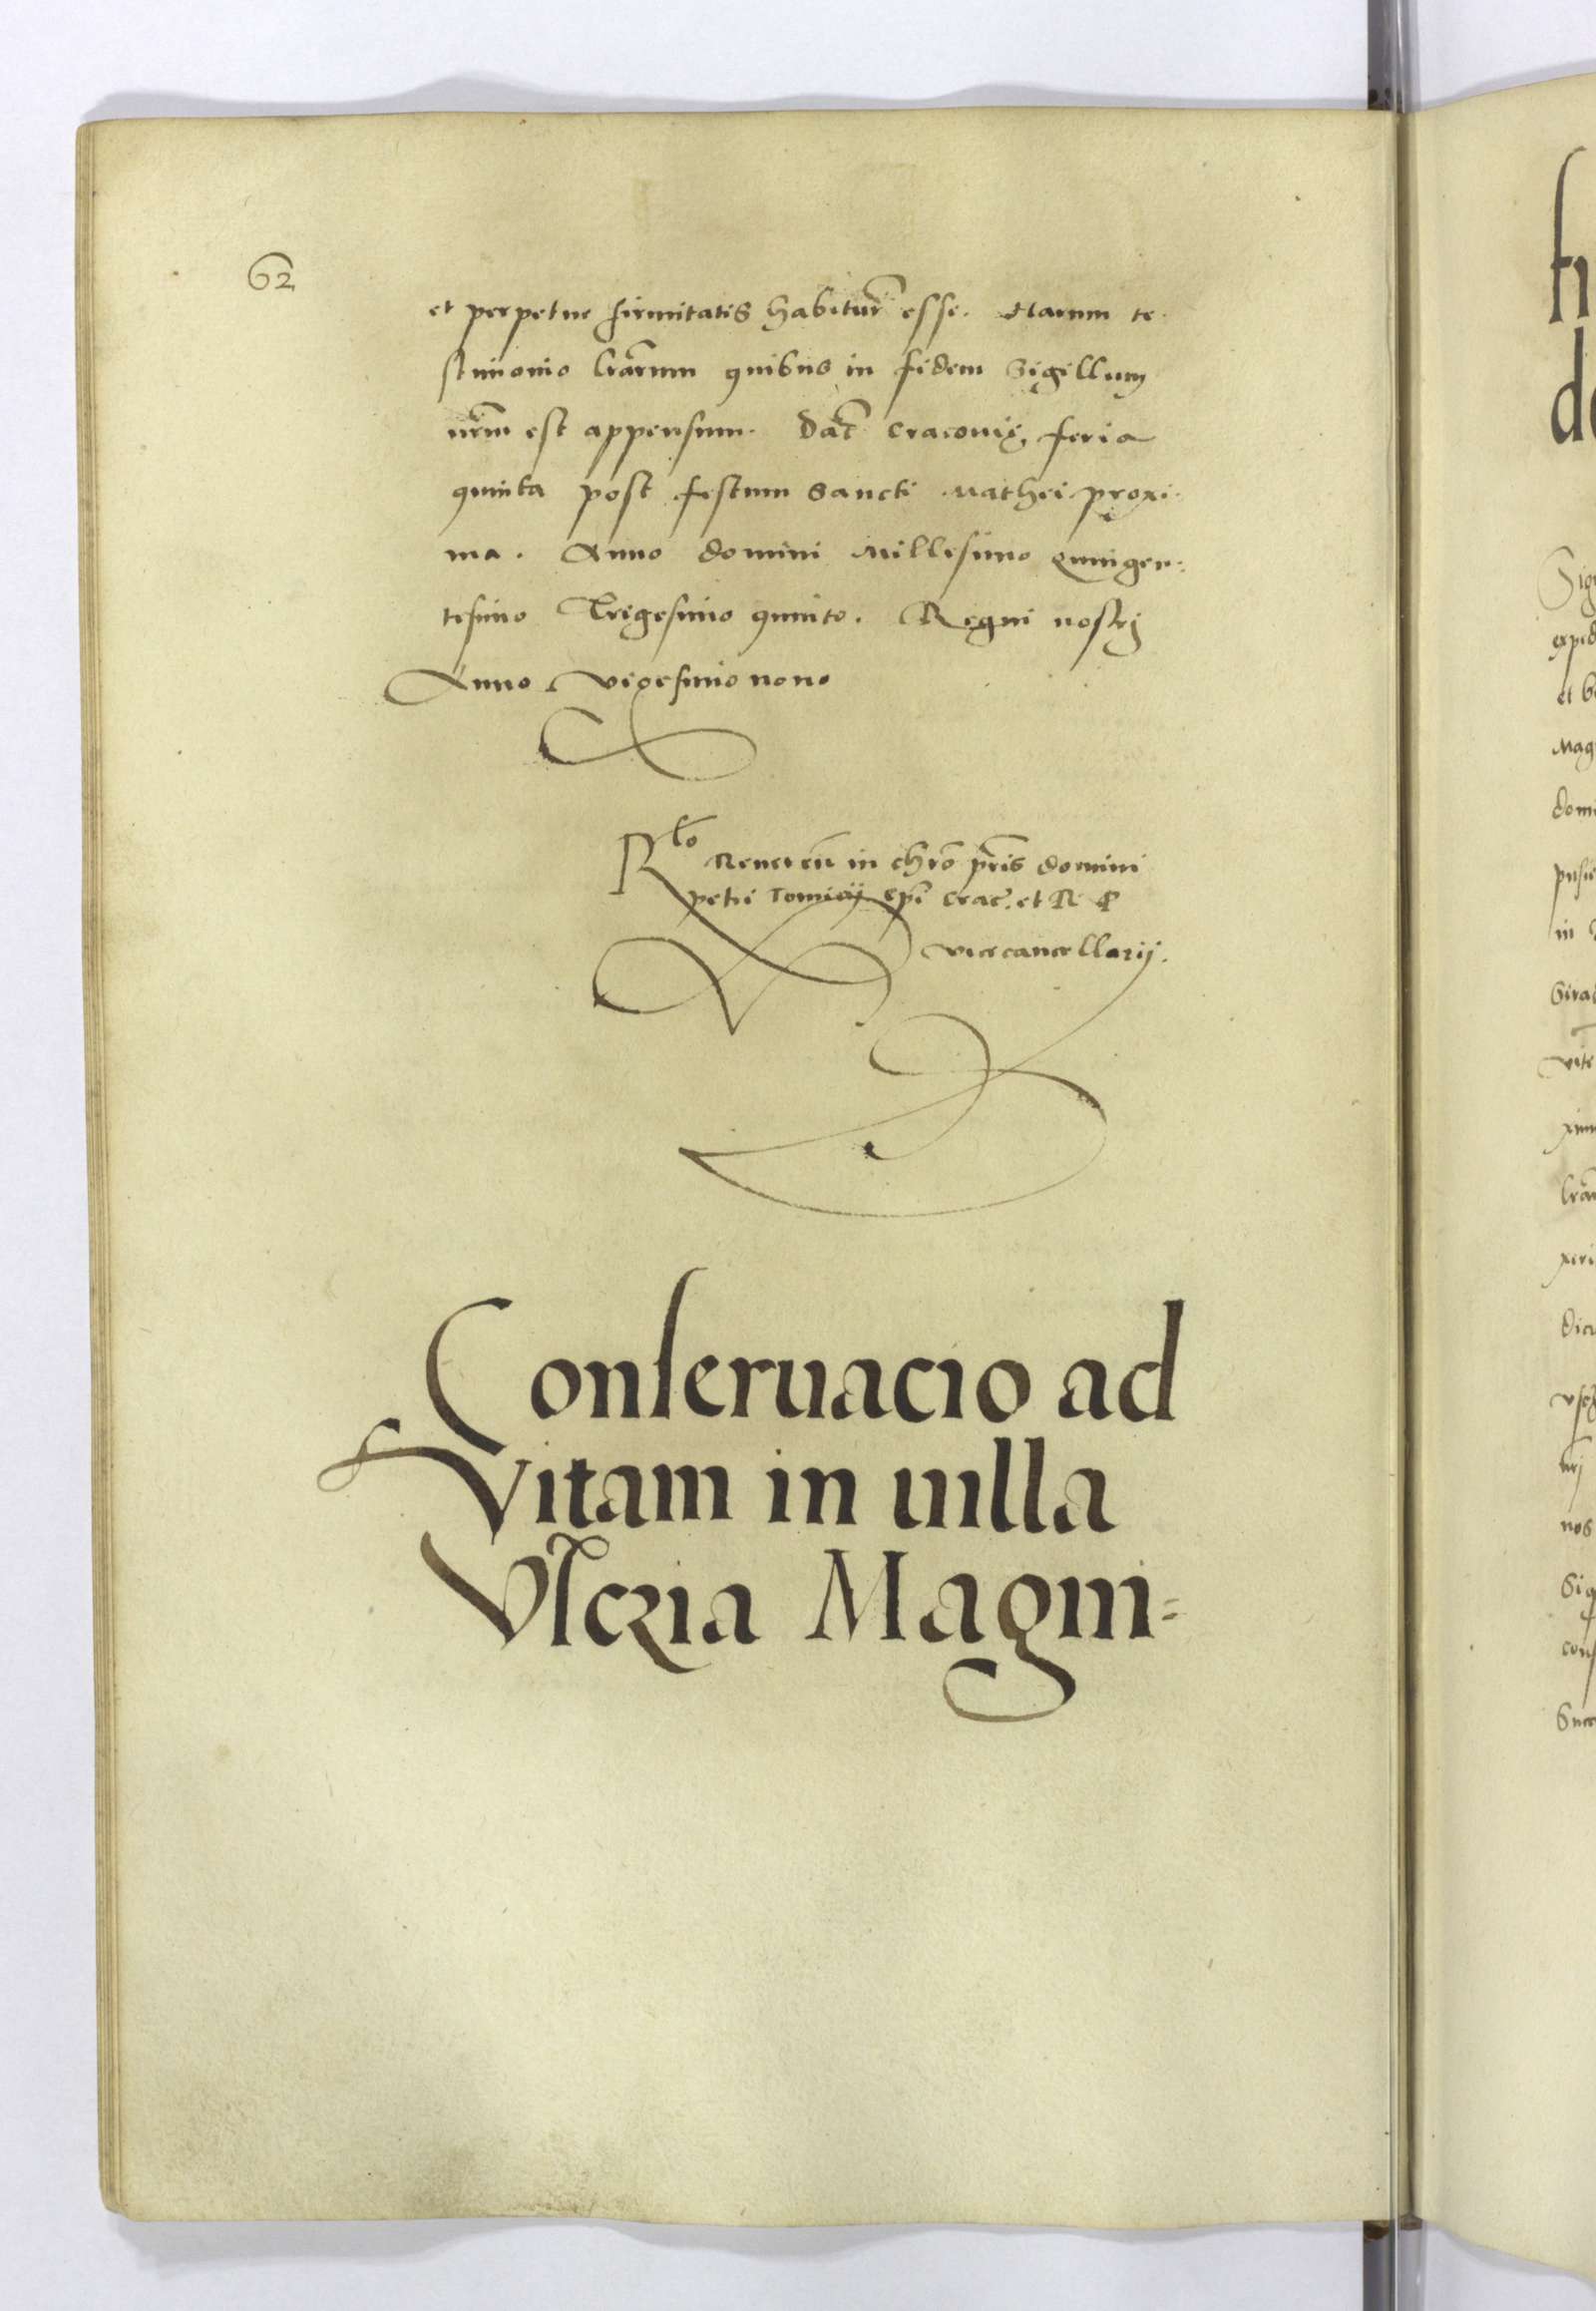 62
et perpetue firmitatis habitur̃ esse. Harum te-
stimonio lrārum quibus in fidem Sigillum
nrm̃ est appensum. Datͫ Cracovię, feria
quinta post festum Sancti Mathei proxi-
ma. Anno domini Millesimo quingen-
tesimo Trigesimo quinto. Regni nostrj
Anno vigesimo nono
Rlo Reveren̄ in chrō pr̃is domini
petri Tomicij ep̃i Crac̃. et R P
vicecancellarij.
Conseruacio ad
Vitam in uilla
Vlczia Magni-